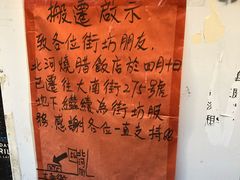 搬遷啟示
致各位街坊朋友,
北河燒腊飯店於四月十日
已遷往大南街275號
地下,繼續為街坊服
務,感謝各位一直支持